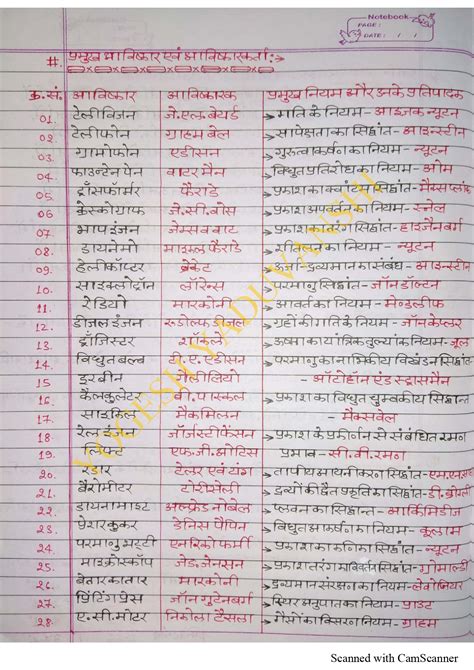 Notebook
PAGE:
DATE: / /
#. प्रमुख आविष्कार एवं आविष्कारकर्ता :→
क्र.सं. आविष्कार आविष्कारक प्रमुख नियम और उनके प्रतिपादक
01. टेलीविजन जे.एल.बेयर्ड →गति के नियम - आइजक न्यूटन
02. टेलीफोन ग्राहम बेल →सापेक्षता का सिद्धांत - आइन्स्टीन
03. ग्रामोफोन एडीसन →गुरुत्वाकर्षण का नियम - न्यूटन
04. फाउन्टेन पेन वाटर मैन →विद्युत प्रतिरोध का नियम - ओम
05. ट्राँसफॉर्मर फैराडे →प्रकाश का क्वांटम सिद्धांत - मैक्स प्लांक
06 क्रेस्कोग्राफ जे.सी.बोस →प्रकाश अपवर्तन का नियम - स्नेल
07. भाप इंजन जेम्स वाट →प्रकाश का तरंग सिद्धांत - हाइजेनबर्ग
08. डायनेमो माइकल फैराडे →शीतलन का नियम - न्यूटन
09. हेलीकॉप्टर ब्रेकेट →ऊर्जा-द्रव्यमान का संबंध - आइन्स्टीन
10. साइक्लोट्रॉन लॉरेन्स →परमाणु सिद्धांत - जॉन डॉल्टन
11. रेडियो मारकोनी →आवर्त का नियम - मेण्डलीफ
12. डीजल इंजन रूडोल्फ डीजल →ग्रहों की गति के नियम - जॉन केप्लर
13. ट्रॉजिस्टर शॉकले →ऊष्मा का यांत्रिक तुल्यांक का नियम - जूल
14. विद्युत बल्ब टी.ए.एडीसन →परमाणु का नाभिकीय विखंडन सिद्धांत
15 दूरबीन गैलीलियो - ऑटोहॉन एंड स्ट्रासमैन
16. कैलकुलेटर बी.पास्कल →प्रकाश का विद्युत चुम्बकीय सिद्धांत
17. साइकिल मैकमिलन - मैक्सवेल
18. रेल इंजन जॉर्ज स्टीफेंसन →प्रकाश के प्रकीर्णन से संबंधित रमन
19. लिफ्ट एफ.जी.ओटिस प्रभाव - सी.वी.रमन
20. रडार टेलर एवं यंग
21. बैरोमीटर टोरीसेली
22. डायनामाइट अल्फ्रेड नोबेल →प्लवन का सिद्धान्त - आर्किमिडीज
23. प्रेशर कुकर डेनिस पैपिन →विद्युत आकर्षण का नियम - कूलाम
24. परमाणु भट्टी एनरिको फर्मी →प्रकाश का कणिका सिद्धांत - न्यूटन
25. माइक्रोस्कोप जेड.जेनसन
26. बेतार का तार मारकोनी →द्रव्यमान संरक्षण का नियम - लेवोजियर
27. प्रिंटिंग प्रेस जॉन गुटेनबर्ग →स्थिर अनुपात का नियम - प्राउट
28. ए.सी.मोटर निकोला टेसला →गैसों का विसरण नियम - ग्राहम
YOGESH YADUVANSHI
Scanned with CamScanner